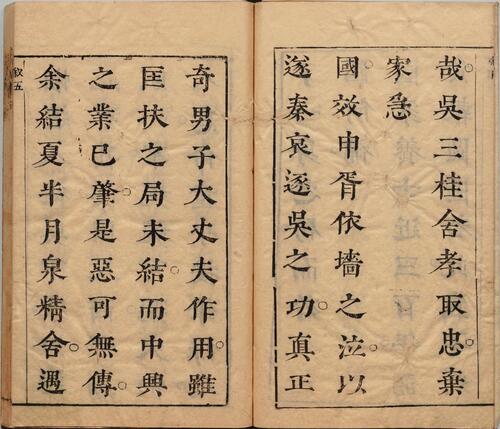 哉吳三桂舍孝取忠棄
家急
國效申胥依墻之泣以
逐秦哀逐吳之功真正
奇男子大丈夫作用雖
匡扶之局未結而中興
之業已肇是惡可無傳
余結夏半月泉精舍遇
敘五